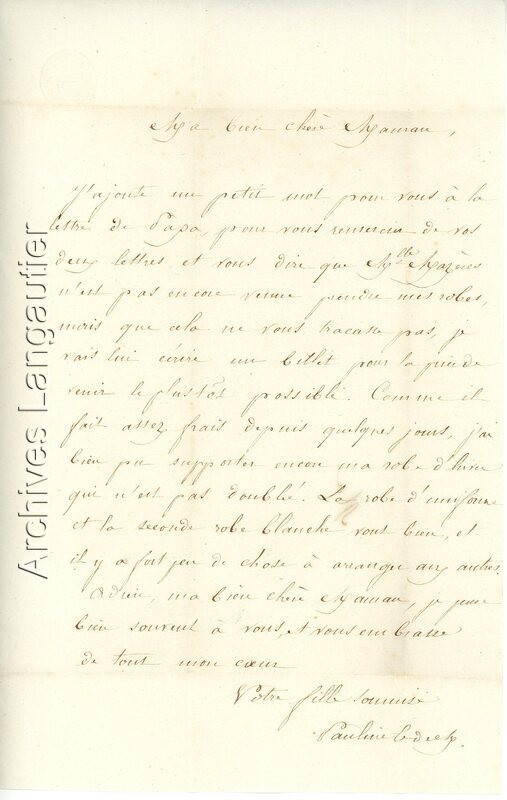 Ma bien chère Maman,
J'ajoute un petit mot pour vous à la
lettre de Papa, pour vous remercier de vos
deux lettres et vous dire que Mlle Mazères
n'est pas encore venue prendre mes robes,
mais que cela ne vous tracasse pas, je
vais lui écrire un billet pour la prier de
venir le plus tôt possible. Comme il
fait assez frais depuis quelques jours, j'ai
bien pu supporter encore ma robe d'hiver
qui n'est pas doublé. La robe d'uniforme
et la seconde robe blanche vont bien, et
il y a fort peu de chose à arranger aux autres.
Adieu, ma bien chère Maman, je pense
bien souvent à vous, et vous embrasse
de tout mon cœur
Votre fille soumise
Pauline
Archives Langautier